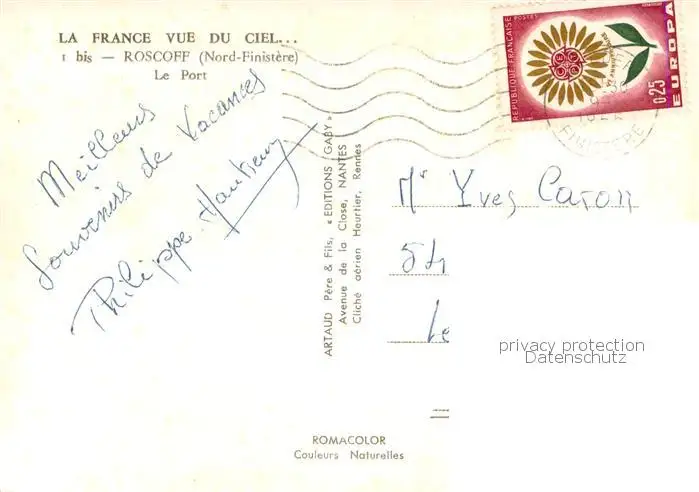 LA FRANCE VUE DU CIEL...
1 bis — ROSCOFF (Nord-Finistère)
Le Port
Meilleurs
Souvenirs de Vacances
Philippe
ARTAUD Père & Fils, « EDITIONS GABY »
Avenue de la Close, NANTES
Cliché aérien Heurtier, Rennes
REPUBLIQUE FRANÇAISE
POSTES
EUROPA
0,25
FINISTERE
Mr Yves Caron
54
Le
privacy protection
Datenschutz
ROMACOLOR
Couleurs Naturelles